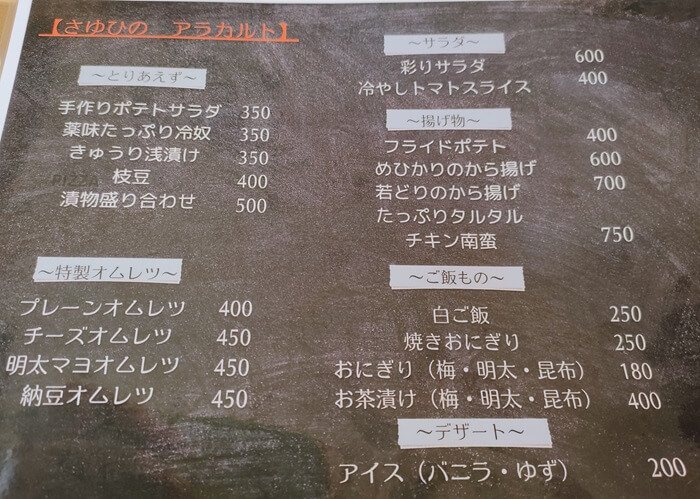 【さゆひの　アラカルト】
～とりあえず～
手作りポテトサラダ 350
薬味たっぷり冷奴 350
きゅうり浅漬け 350
枝豆 400
漬物盛り合わせ 500
～特製オムレツ～
プレーンオムレツ 400
チーズオムレツ 450
明太マヨオムレツ 450
納豆オムレツ 450
～サラダ～
彩りサラダ 600
冷やしトマトスライス 400
～揚げ物～
フライドポテト 400
めひかりのから揚げ 600
若どりのから揚げ 700
たっぷりタルタル
チキン南蛮 750
～ご飯もの～
白ご飯 250
焼きおにぎり 250
おにぎり（梅・明太・昆布） 180
お茶漬け（梅・明太・昆布） 400
～デザート～
アイス（バニラ・ゆず） 200